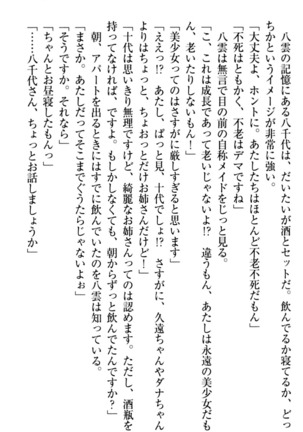 八雲の記憶にある八千代は、だいたいが酒とセットだ。飲んでるか寝てるか、どっ
ちかというイメージが非常に強い。
「大丈夫よ、ホントに。あたしたちはほとんど不老不死だもん」
「不死はともかく、不老はデマですね」
八雲は無言で目の前の自称メイドをじっと見る。
「こ、これは成長であって老いじゃないよ!? 違うもん、あたしは永遠の美少女だも
ん、老いたりしないもん!」
「美少女ってのはさすがに厳しすぎると思います」
「ええっ!? あたし、ぱっと見、十代でしょ!? さすがに、久遠ちゃんやダナちゃん
よりはちょっと、ちょおっとだけお姉さんだけど!」
「十代は思いきり無理ですけど、綺麗なお姉さんってのは認めます。ただし、酒瓶を
持ってなければ、ですよ。もしかしなくても、朝からずっと飲んでたんですか?」
朝、アパートを出るときにはすでに飲んでいたのを八雲は知っている。
「まさか。あたしだってそこまでぐうたらじゃないよぉ」
「そうですか。それなら」
「ちゃんとお昼寝したもんっ」
「八千代さん、ちょっとお話しましょうか」